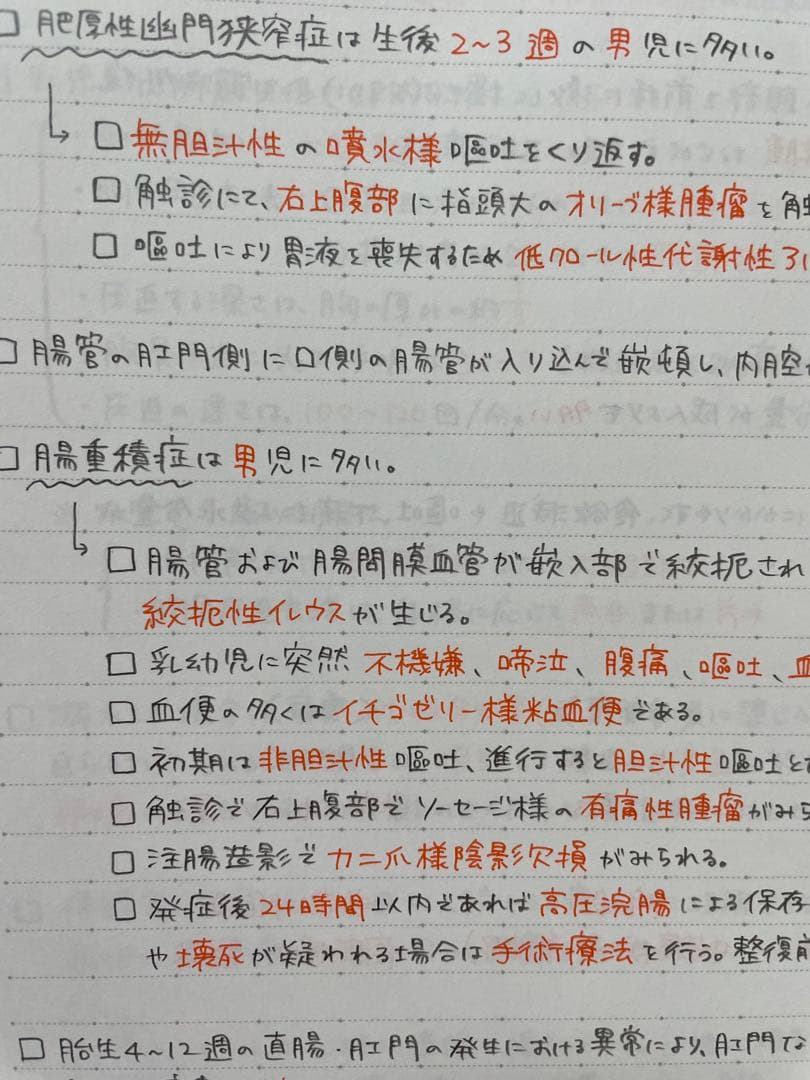 □ 肥厚性幽門狭窄症は生後2~3週の男児に多い。
□ 無胆汁性の噴水様嘔吐をくり返す。
□ 触診にて、右上腹部に指頭大のオリーブ様腫瘤を触
□ 嘔吐により胃液を喪失するため低クロール性代謝性アル
□ 腸管の肛門側に口側の腸管が入り込んで嵌頓し、内腔が
□ 腸重積症は男児に多い。
□ 腸管および腸間膜血管が嵌入部で絞扼され
絞扼性イレウスが生じる。
□ 乳幼児に突然 不機嫌、啼泣、腹痛、嘔吐、血
□ 血便の多くはイチゴゼリー様粘血便である。
□ 初期は非胆汁性嘔吐、進行すると胆汁性嘔吐と
□ 触診で右上腹部でソーセージ様の有痛性腫瘤がみら
□ 注腸造影でカニ爪様陰影欠損がみられる。
□ 発症後24時間以内であれば高圧浣腸による保存
や壊死が疑われる場合は手術療法を行う。整復前
□ 胎生4~12週の直腸・肛門の発生における異常により、肛門